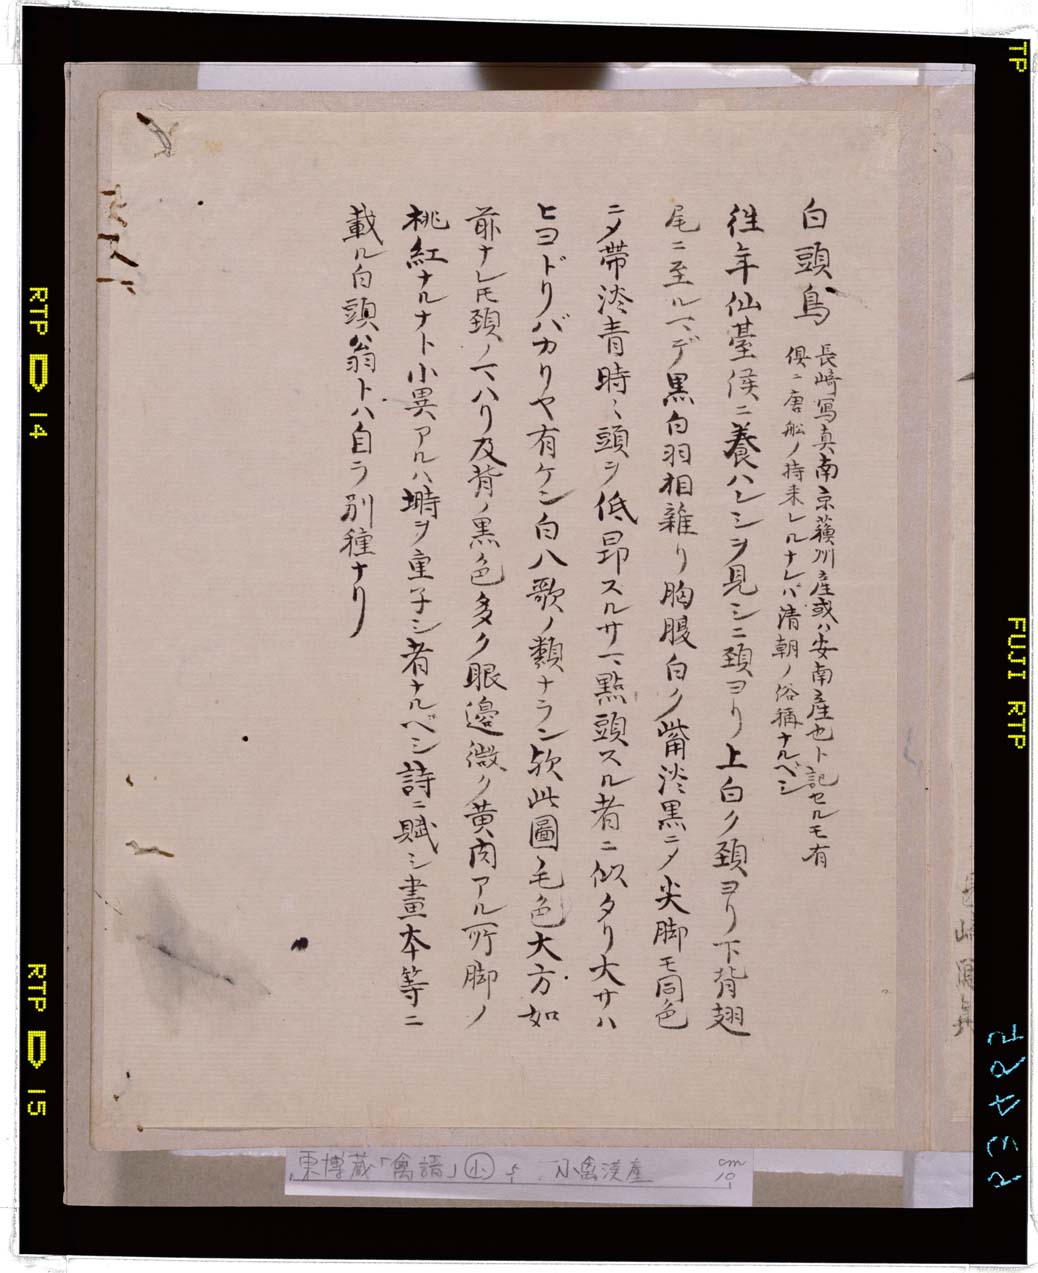 白頭鳥
長崎写真南京蘓州産或ハ安南産也ト記セルモ有
倶ニ唐舩ノ持来レルナレバ清朝ノ俗稱ナルベシ
往年仙臺侯ニ養ハレシヲ見シニ頚ヨリ上白ク頚ヨリ下背翅
尾ニ至ルマデ黒白羽相雜リ胸腹白ク觜淡黒ニメ尖脚モ同色
ニメ帯淡青時〻頭ヲ低昂スルサマ點頭スル者ニ似タリ大サハ
ヒヨドリバカリヤ有ケン白八歌ノ類ナラン欤此圖ノ毛色大方如
前ナレ𪜈頚ノマハリ及背ノ黒色多ク眼邊微ク黄肉アル所脚ノ
桃紅ナルナト小異アルハ塒ヲ重子シ者ナルベシ詩ニ賦シ畫本等ニ
載ル白頭公翁トハ自ラ別種ナリ
東博蔵「禽譜」小 小禽漢産
cm
10
TP
RTP 14
FUJI RTP
RTP 15